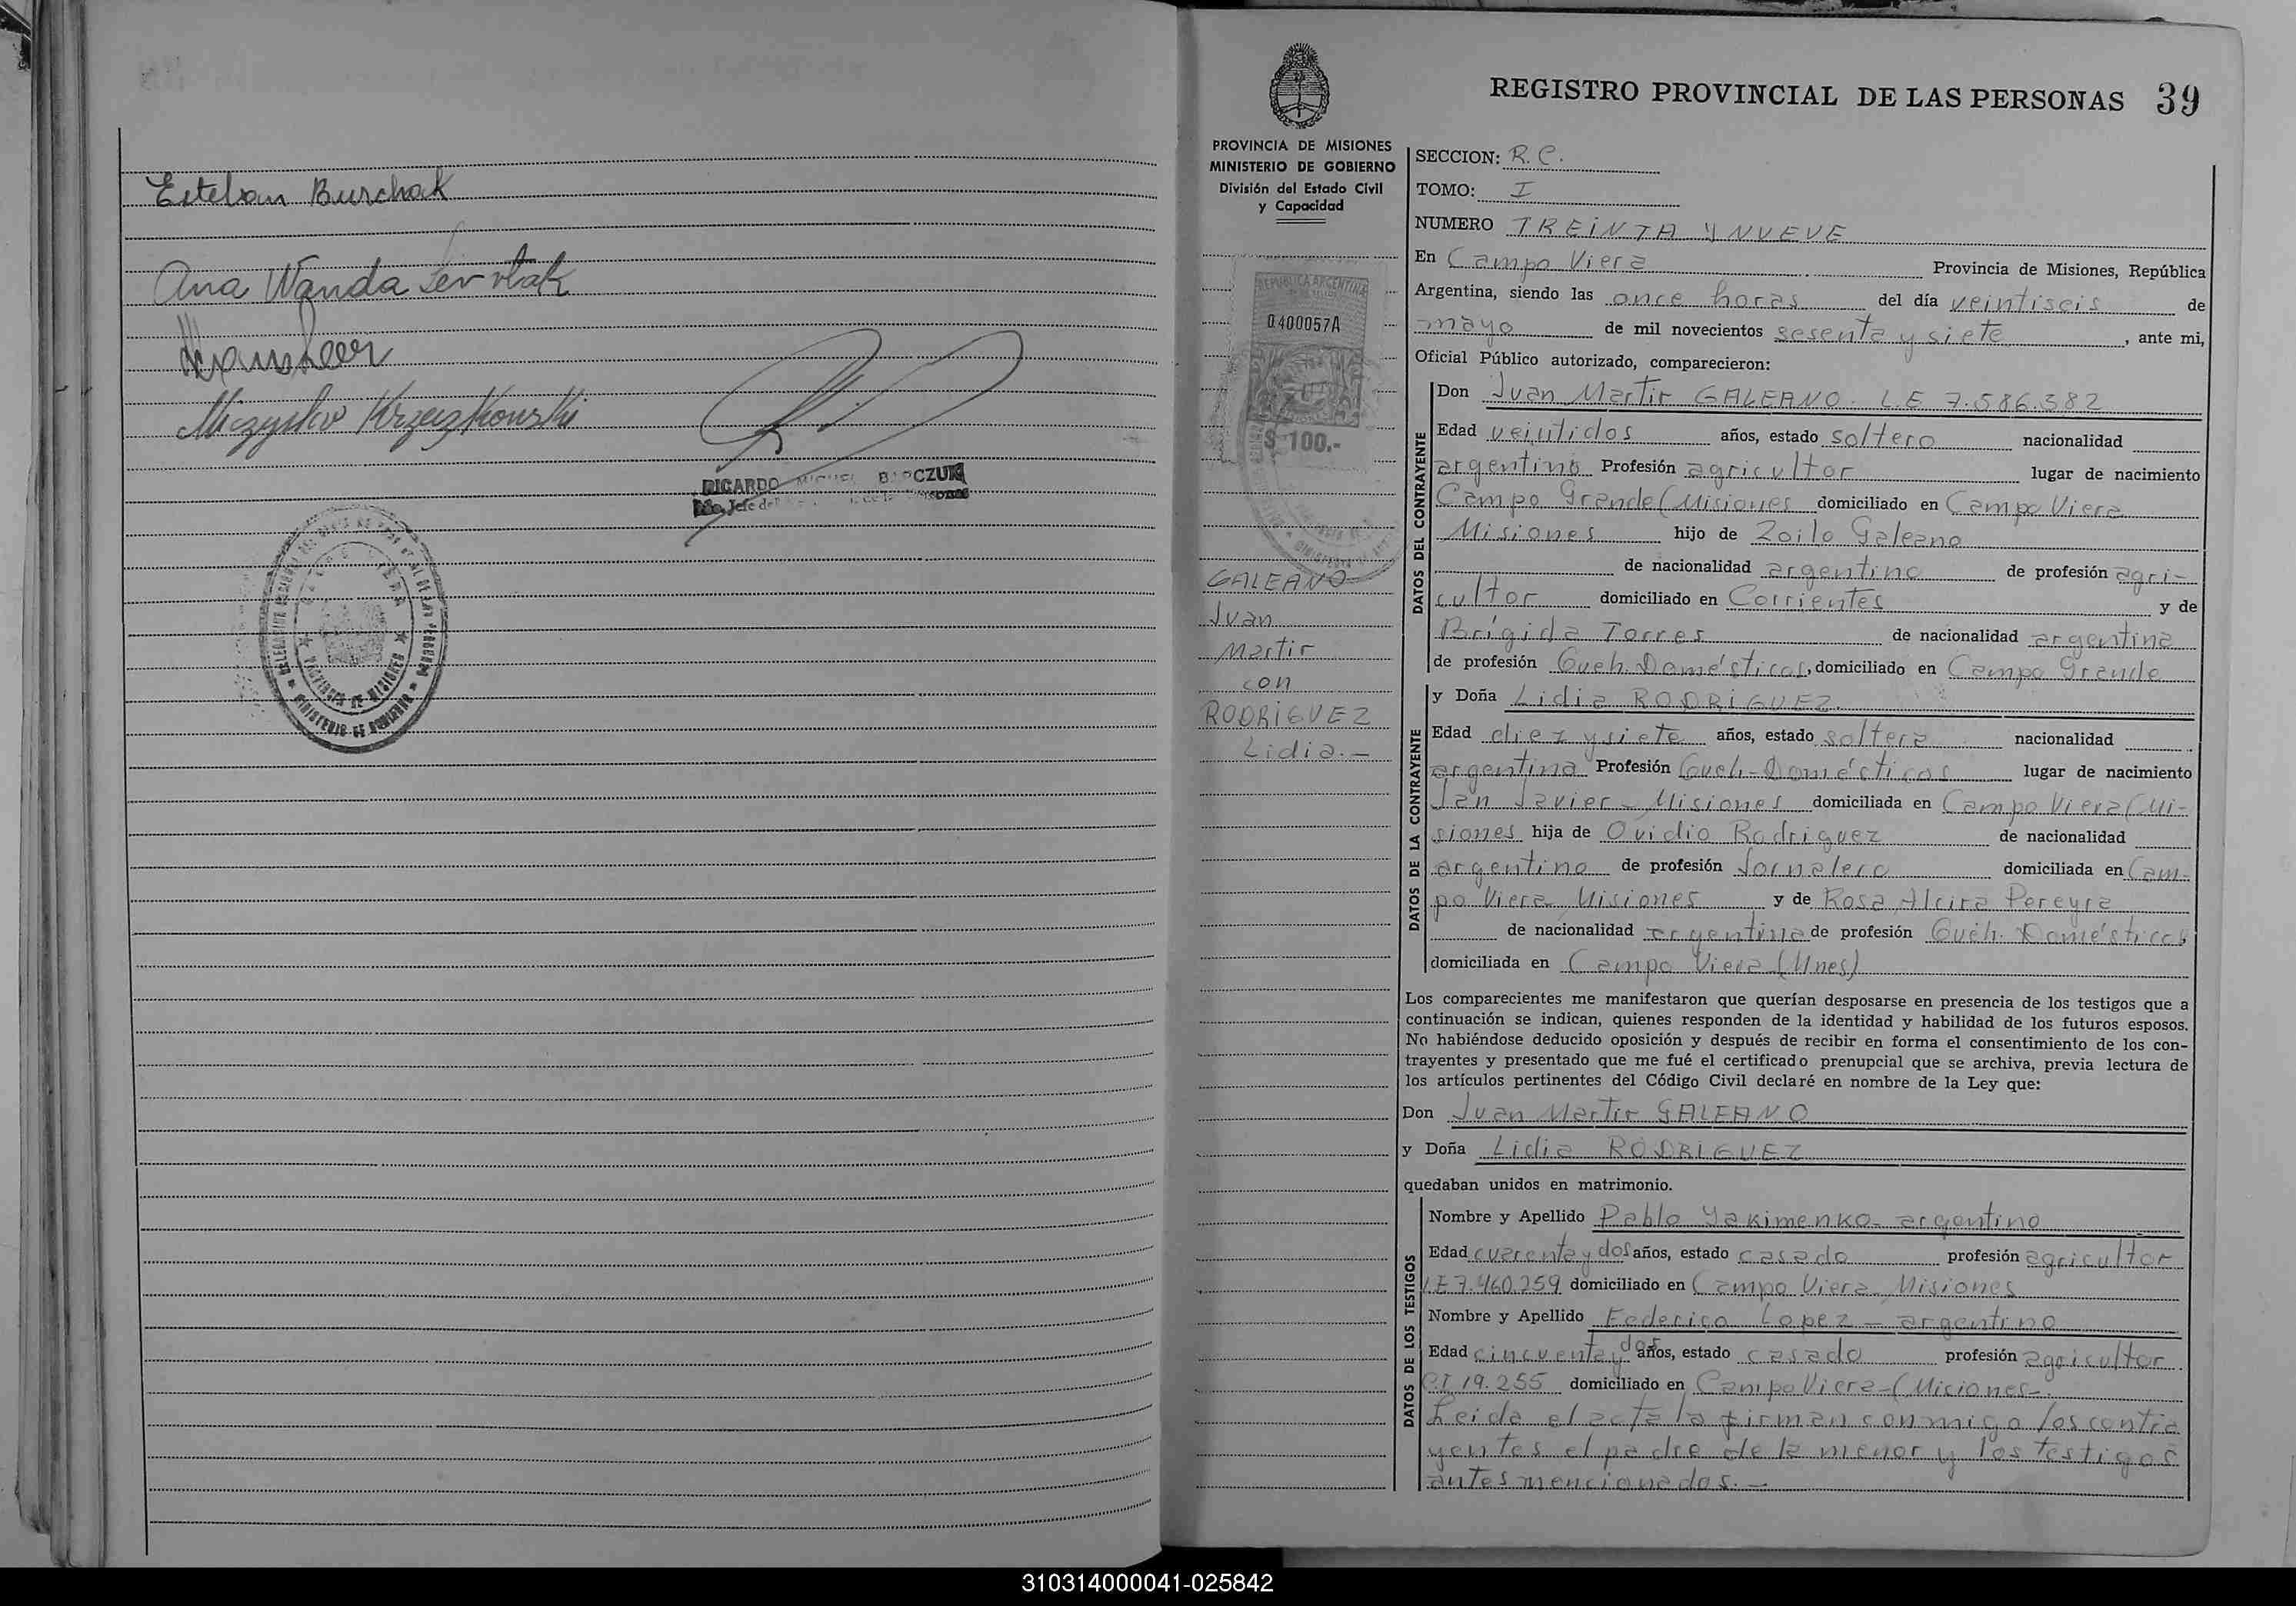 Esteban Burchak
Ana Wanda
Krzeszkowski
RICARDO MIGUEL BARCZUK
MINISTERIO DE GOBIERNO
PROVINCIA DE MISIONES
REGISTRO PROVINCIAL DE LAS PERSONAS 39
PROVINCIA DE MISIONES
MINISTERIO DE GOBIERNO
División del Estado Civil
y Capacidad
REPUBLICA ARGENTINA
0400057A
$ 100.-
GALEANO
Juan
Martir
con
RODRIGUEZ
Lidia.-
SECCION: R.C.
TOMO: I
NUMERO TREINTA Y NUEVE
En Campo Viera Provincia de Misiones, República
Argentina, siendo las once horas del día veintiseis de
mayo de mil novecientos sesenta y siete, ante mi,
Oficial Público autorizado, comparecieron:
DATOS DEL CONTRAYENTE
Don Juan Martir GALEANO. L.E 7.586.382
Edad veintidos años, estado soltero nacionalidad
argentino Profesión agricultor lugar de nacimiento
Campo Grande (Misiones domiciliado en Campo Viera
Misiones hijo de Zoilo Galeano
de nacionalidad argentino de profesión agri-
cultor domiciliado en Corrientes y de
Brígida Torres de nacionalidad argentina
de profesión Queh. Domésticos, domiciliado en Campo Grande
DATOS DE LA CONTRAYENTE
y Doña Lidia RODRIGUEZ.
Edad diez y siete años, estado soltera nacionalidad
argentina Profesión Queh-Domésticos lugar de nacimiento
San Javier - Misiones domiciliada en Campo Viera (Mi-
siones hija de Ovidio Rodriguez de nacionalidad
argentino de profesión Jornalero domiciliada en Cam-
po Viera Misiones y de Rosa Alcira Pereyra
de nacionalidad argentina de profesión Queh. Domésticos
domiciliada en Campo Viera (Mnes)
Los comparecientes me manifestaron que querían desposarse en presencia de los testigos que a
continuación se indican, quienes responden de la identidad y habilidad de los futuros esposos.
No habiéndose deducido oposición y después de recibir en forma el consentimiento de los con-
trayentes y presentado que me fué el certificado prenupcial que se archiva, previa lectura de
los artículos pertinentes del Código Civil declaré en nombre de la Ley que:
Don Juan Martir GALEANO
y Doña Lidia RODRIGUEZ
quedaban unidos en matrimonio.
DATOS DE LOS TESTIGOS
Nombre y Apellido Pablo Yakimenko - argentino
Edad cuarenta y dos años, estado casado profesión agricultor
L.E 7.460.259 domiciliado en Campo Viera Misiones
Nombre y Apellido Federico Lopez - argentino
Edad cincuenta y dos años, estado casado profesión agricultor
C.I 19.255 domiciliado en Campo Viera - (Misiones-
Leida el acta la firman conmigo los contra
yentes el padre de la menor y los testigos
antes mencionados.-
310314000041-025842